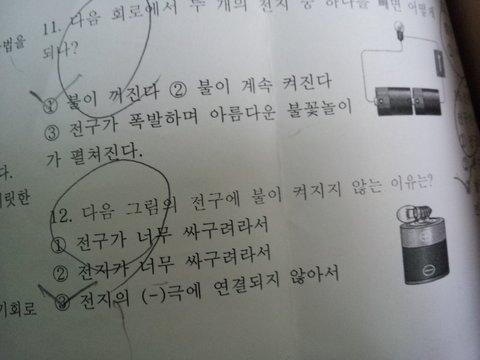 11. 다음 회로에서 두 개의 전지 중 하나를 빼면 어떻게
되나?
① 불이 꺼진다 ② 불이 계속 켜진다
③ 전구가 폭발하며 아름다운 불꽃놀이
가 펼쳐진다.
12. 다음 그림의 전구에 불이 켜지지 않는 이유는?
① 전구가 너무 싸구려라서
② 전지가 너무 싸구려라서
③ 전지의 (-)극에 연결되지 않아서
법을
다.
릿한
기회로